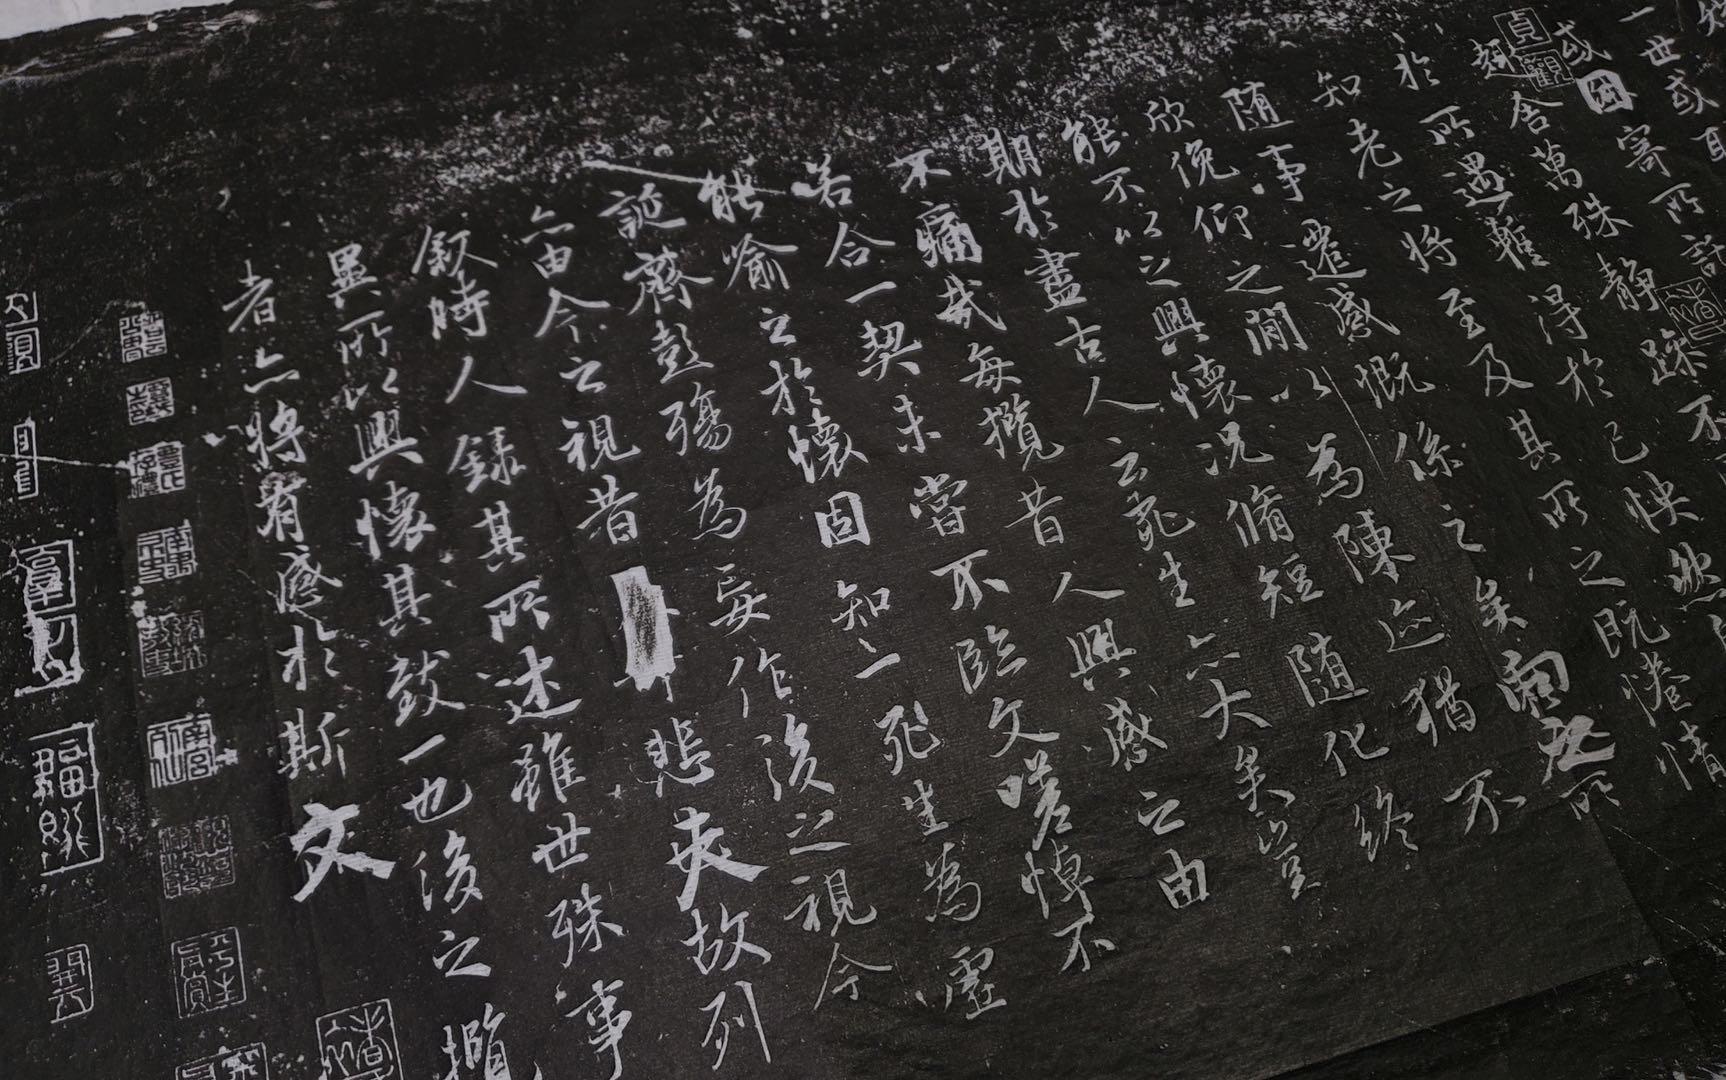 一世或取
或因寄所託
趣舍萬殊靜躁不
於所遇蹔得於己怏然自
知老之將至及其所之既惓情
隨事遷感慨係之矣向之所
欣俛仰之閒以為陳迹猶不
能不以之興懷況脩短隨化終
期於盡古人云死生亦大矣豈
不痛哉每攬昔人興感之由
若合一契未嘗不臨文嗟悼不
能喻之於懷固知一死生為虛
誕齊彭殤為妄作後之視今
亦由今之視昔悲夫故列
敘時人錄其所述雖世殊事
異所以興懷其致一也後之攬
者亦將有感於斯文
貞觀